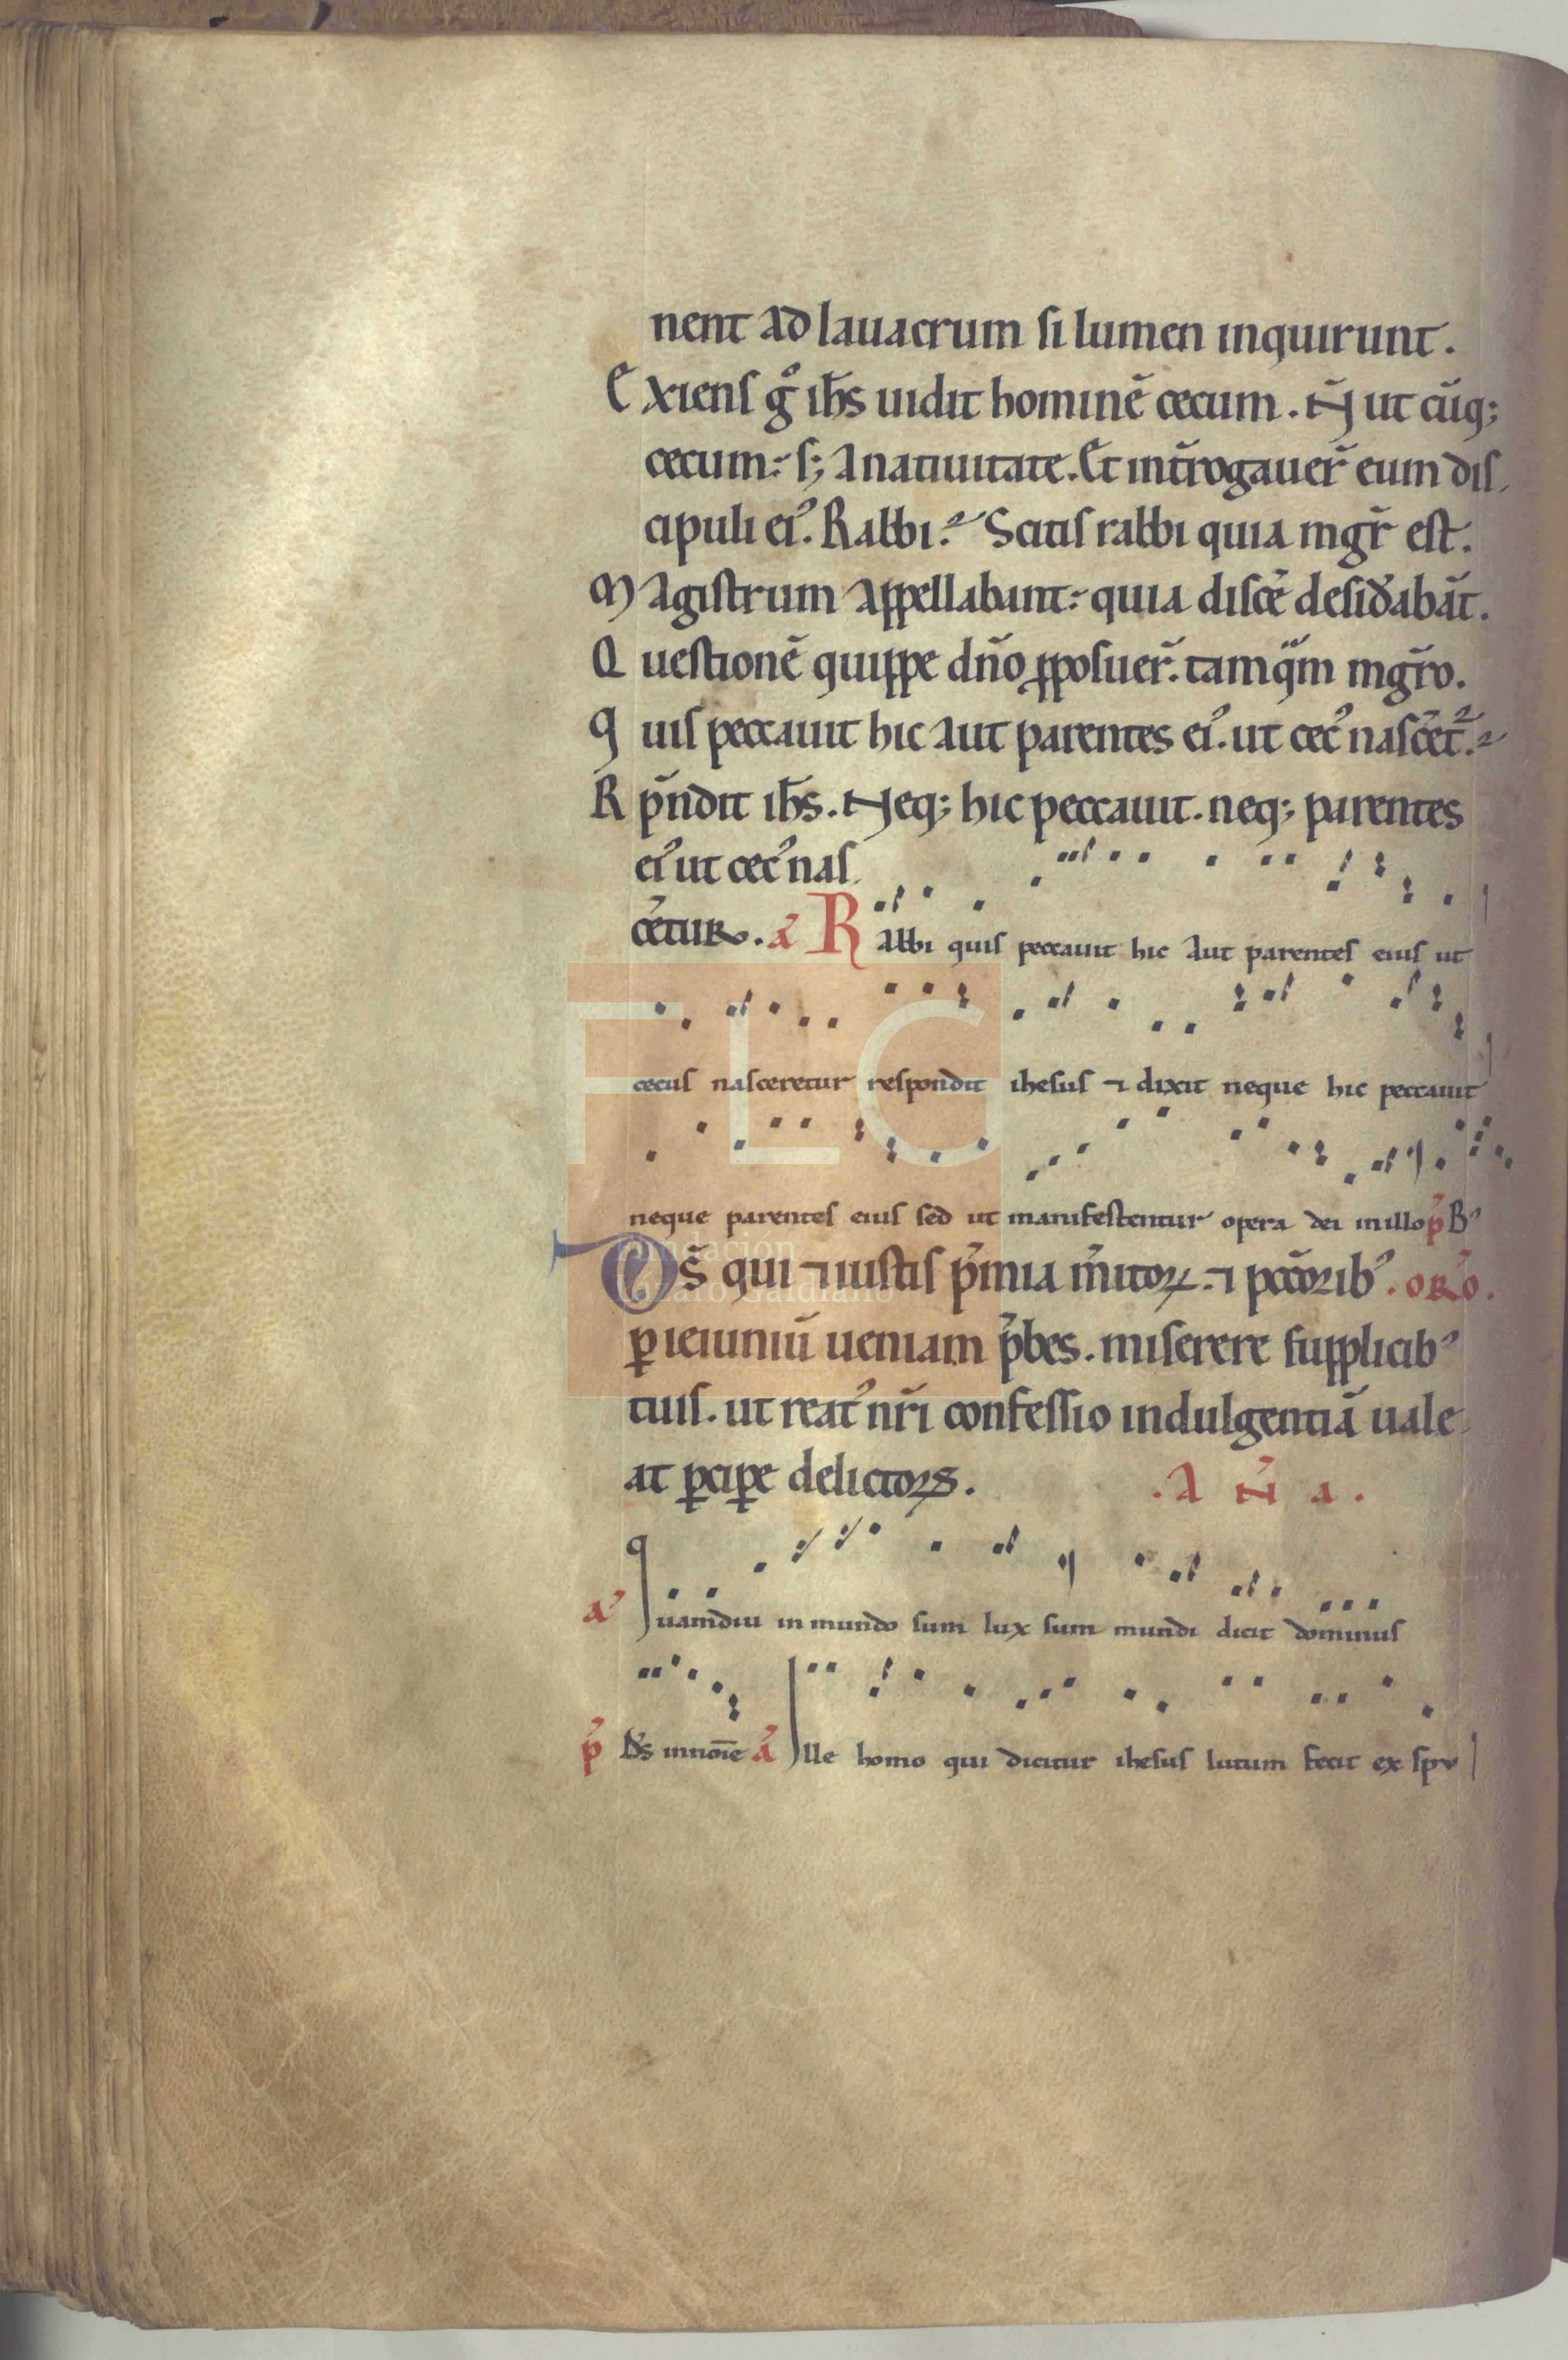 nent ad lauacrum si lumen inquirunt.
Exiens gͦ ih̄s uidit hominē cecum. N̄ ut cūq;
cecum: s; a natiuitate. Et int̄rogauer̄ eum dis
cipuli ei᾽. Rabbi? Scitis rabbi quia mgr̄ est.
Magistrum appellabant: quia disce᷒ desid᷒abāt.
Questionē quippe dn̄o ꝓposuer̄. tamqͣm mgr̄o.
quis peccauit hic aut parentes ei᾽. ut cec᾽ nasce᷒t᷑?
Rp̄ndit ih̄s. Neq; hic peccauit. neq; parentes
ei᾽ ut cec᾽ nas
ce᷒tur. a᷒ Rabbi quis peccauit hic aut parentes eius ut
cecus nasceretur respondit ihesus ⁊ dixit neque hic peccauit
neque parentes eius sed ut manifestentur opera dei in illo p᷒ B᾽
Ds̄ qui ⁊ iustis p᷒mia m᷒itoꝝ. ⁊ pcc̄orib᾽. or᷒o.
ꝑ ieiuniū ueniam p᷒bes. miserere supplicib᾽
tuis. ut reat᾽ nr̄i confessio indulgentiā uale
at ꝑciꝑe delictoꝝ. .A N᷒ a.
a᷒ quamdiu in mundo sum lux sum mundi dicit dominus
p᷒ D᷒s in noīe a᷒ Ille homo qui dicitur ihesus lutum fecit ex spu
FLG
Fundación
Lázaro Galdiano